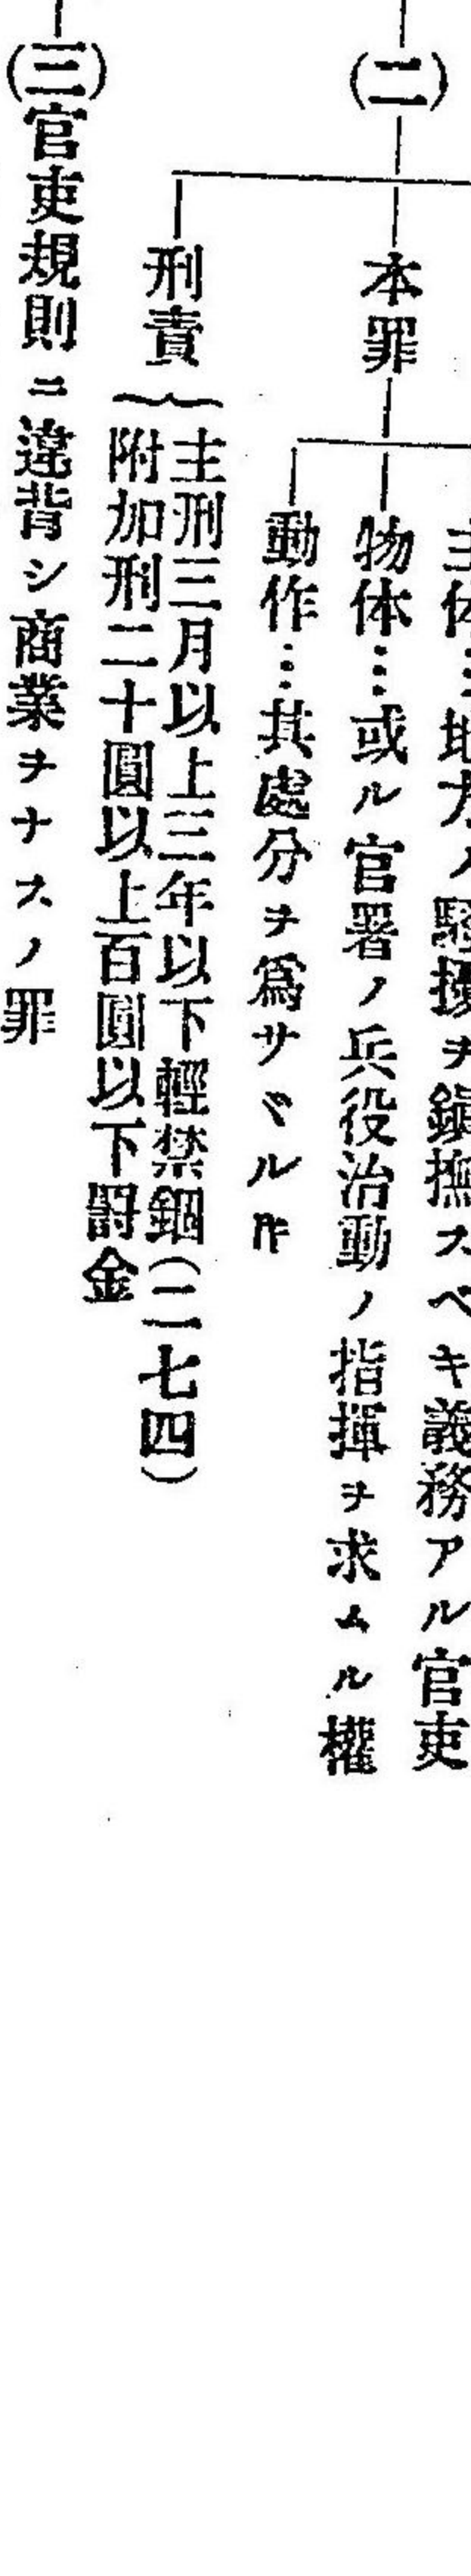 (二)
本罪
主体…地方ノ騷擾ヲ鎭撫スベキ義務アル官吏
物体…或ル官署ノ兵役治動ノ指揮ヲ求ムル權
動作…其處分ヲ爲サヾル所
刑責
主刑三月以上三年以下輕禁錮(二七四)
附加刑二十圓以上百圓以下罰金
(三)官吏規則ニ違背シ商業ヲナスノ罪